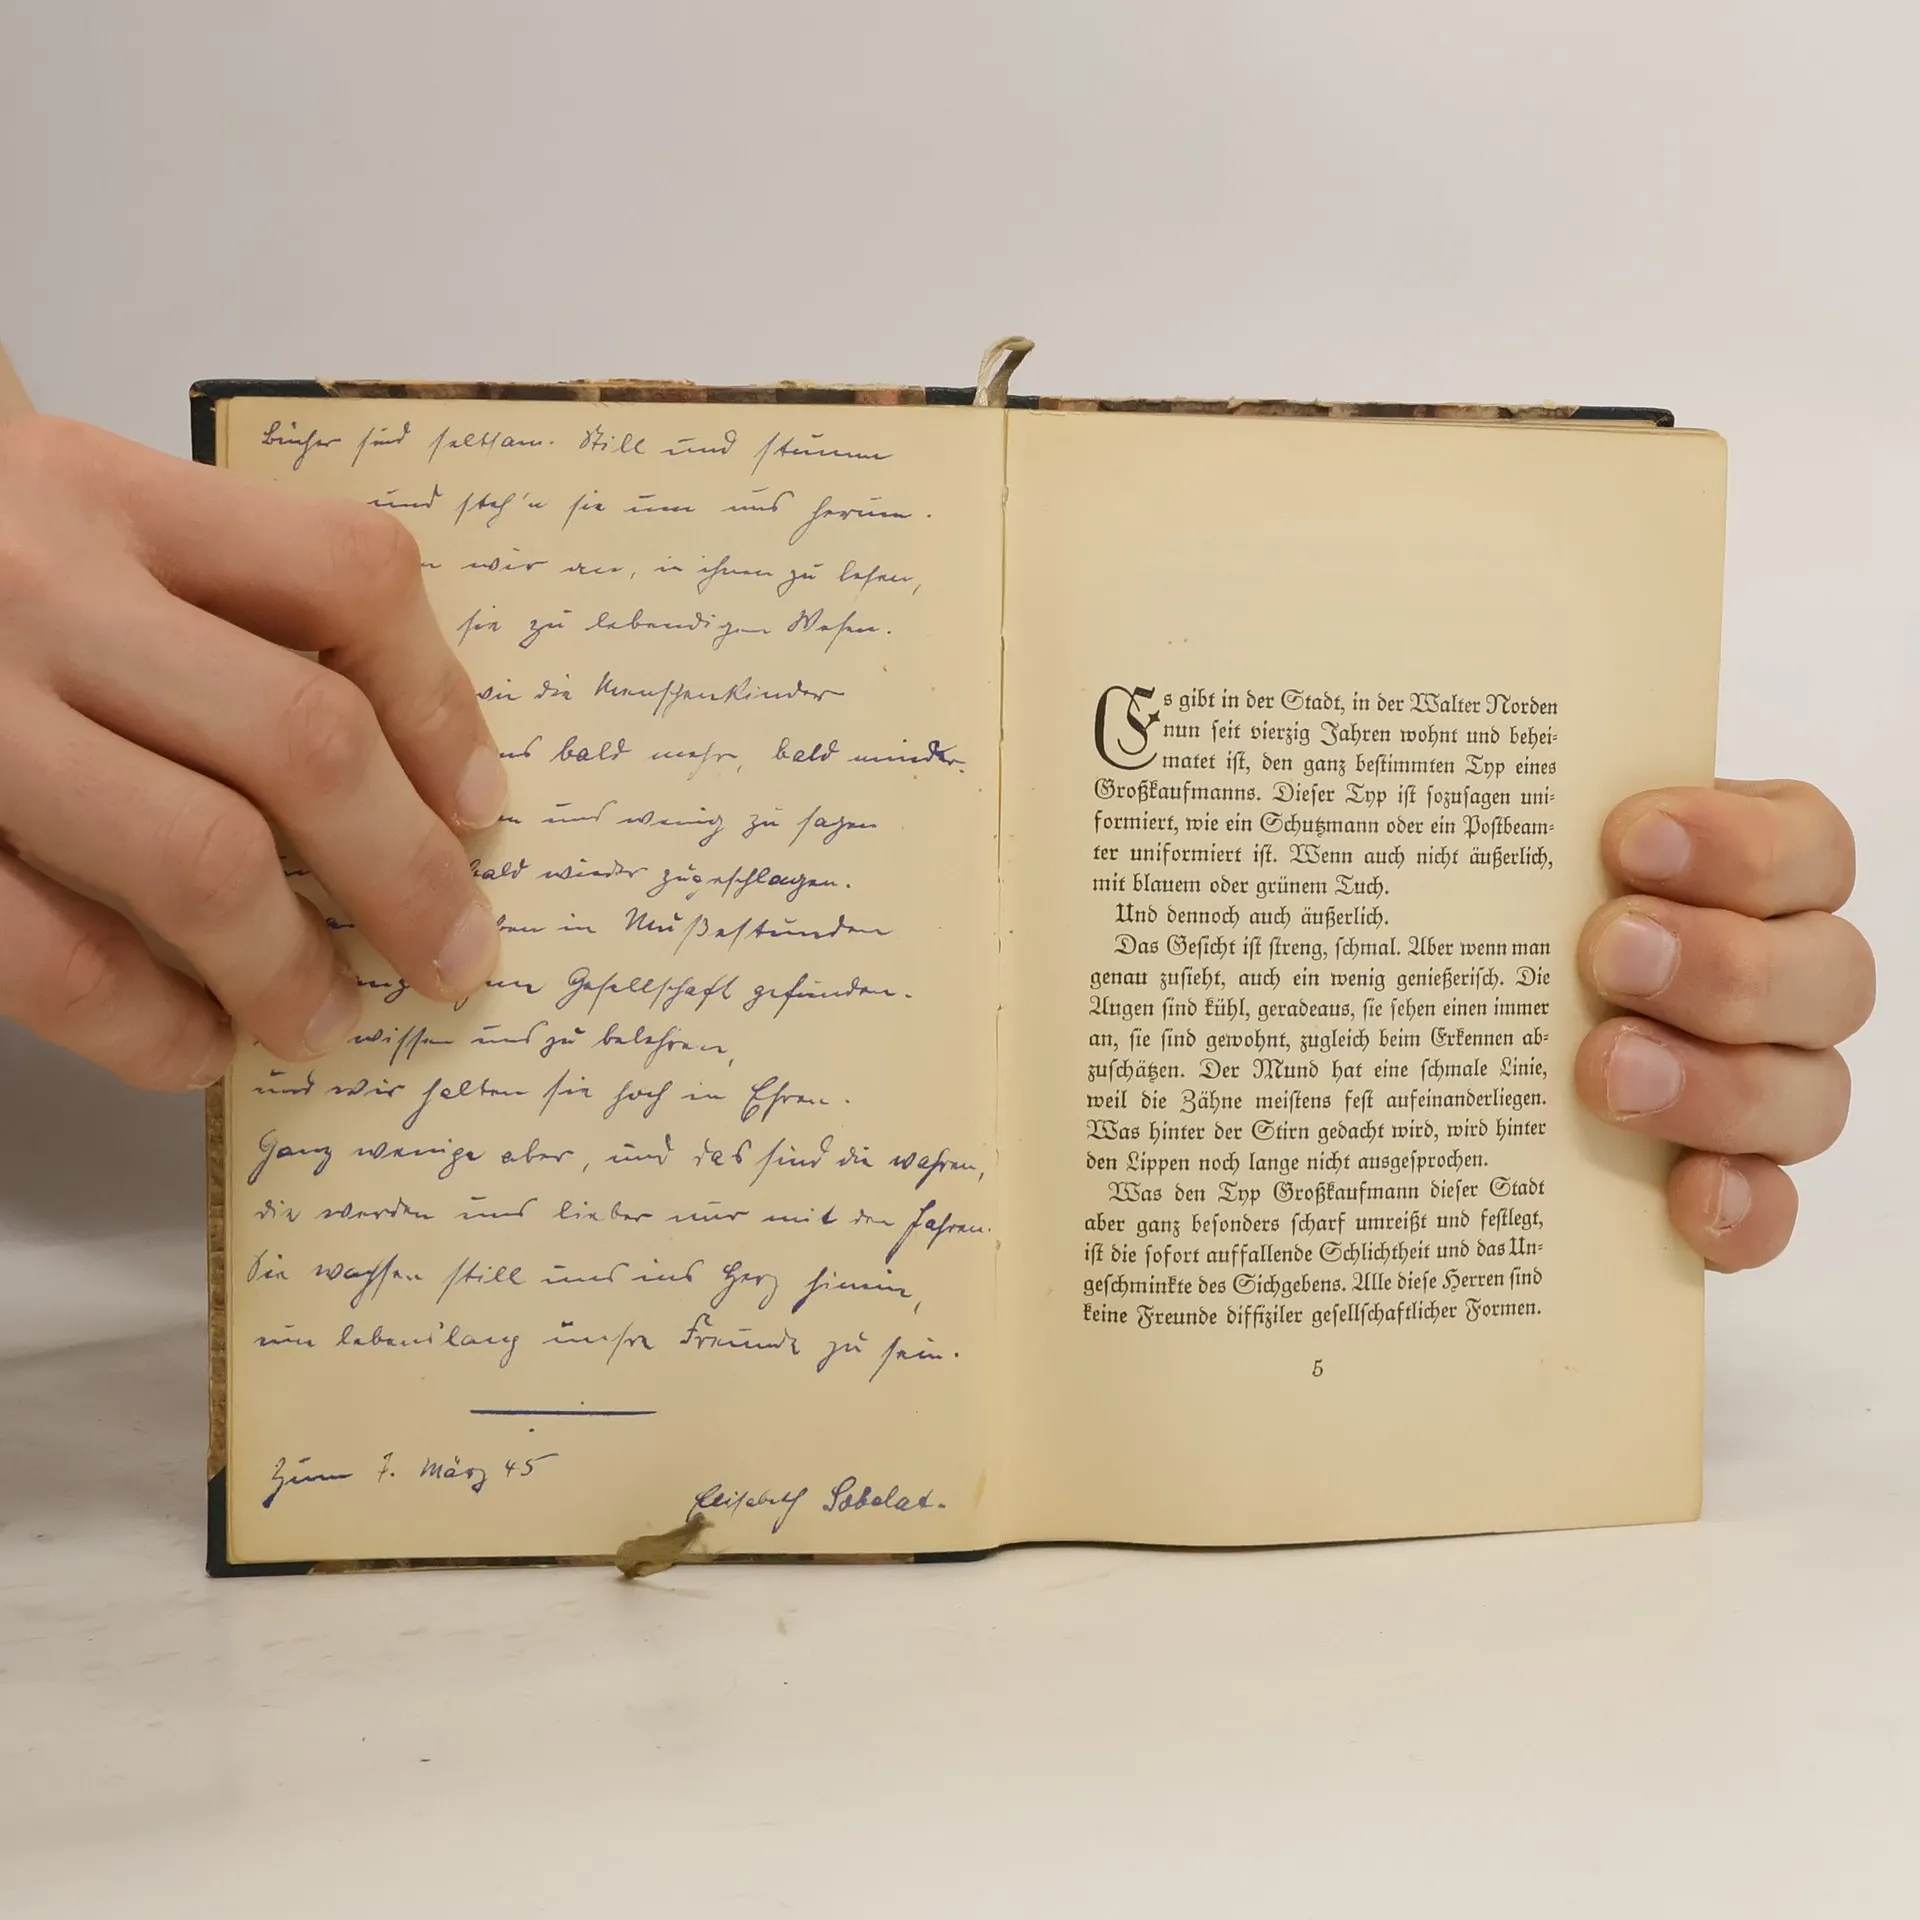 Bücher sind seltsam. Still und stumm
und steh'n sie um uns herum.
wir an, in ihnen zu lesen,
sie zu lebendigen Wesen.
wie die Menschenkinder
bald mehr, bald minder.
uns wenig zu sagen
bald wieder zugeschlagen.
in Mußestunden
Gesellschaft gefunden.
wissen uns zu belehren,
und wir halten sie hoch in Ehren.
Ganz wenige aber, und das sind die wahren,
die werden uns lieber nur mit den Jahren.
Sie wachsen still uns ins Herz hinein,
um lebenslang unsre Freunde zu sein.
Zum 7. März 45
Elisabeth
Es gibt in der Stadt, in der Walter Norden
nun seit vierzig Jahren wohnt und behei-
matet ist, den ganz bestimmten Typ eines
Großkaufmanns. Dieser Typ ist sozusagen uni-
formiert, wie ein Schutzmann oder ein Postbeam-
ter uniformiert ist. Wenn auch nicht äußerlich,
mit blauem oder grünem Tuch.
Und dennoch auch äußerlich.
Das Gesicht ist streng, schmal. Aber wenn man
genau zusieht, auch ein wenig genießerisch. Die
Augen sind kühl, geradeaus, sie sehen einen immer
an, sie sind gewohnt, zugleich beim Erkennen ab-
zuschätzen. Der Mund hat eine schmale Linie,
weil die Zähne meistens fest aufeinanderliegen.
Was hinter der Stirn gedacht wird, wird hinter
den Lippen noch lange nicht ausgesprochen.
Was den Typ Großkaufmann dieser Stadt
aber ganz besonders scharf umreißt und festlegt,
ist die sofort auffallende Schlichtheit und das Un-
geschminkte des Sichgebens. Alle diese Herren sind
keine Freunde diffiziler gesellschaftlicher Formen.
5